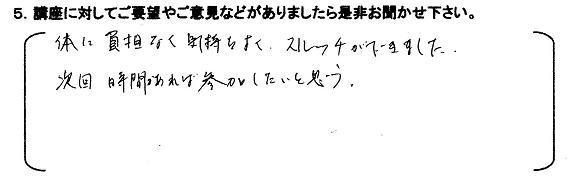 5. 講座に対してご要望やご意見などがありましたら是非お聞かせ下さい。
体に負担なく気持ちよく、ストレッチができました。
次回時間があれば参加したいと思う。